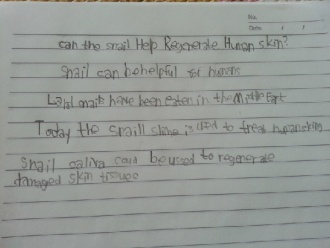 Date:
Can the snail Help Regenerate Human skin?
Snail can be helpful for humans
Land snails have been eaten in the Middle East
Today the snaill slime is used to treat human skins
Snail caliva coud be used to regenerate
damaged skin tissuoe